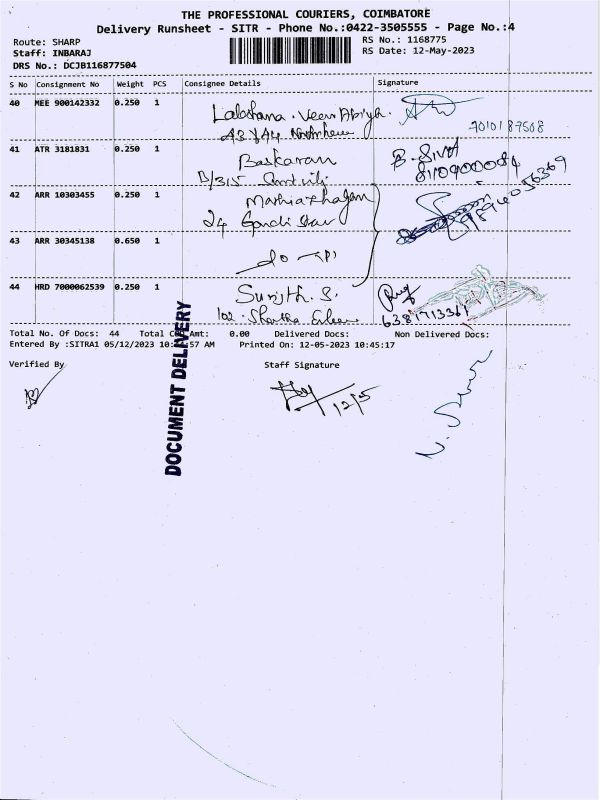 THE PROFESSIONAL COURIERS, COIMBATORE
Delivery Runsheet - SITR - Phone No.:0422-3505555 - Page No.:4
Route: SHARP
RS No.: 1168775
Staff: INBARAJ
RS Date: 12-May-2023
DRS No.: DCJB116877504
S No Consignment No Weight PCS Consignee Details Signature
40 MEE 900142332 0.250 1
7010187508
41 ATR 3181831 0.250 1 Baskaran B. Siva
B/315
42 ARR 10303455 0.250 1
24
43 ARR 30345138 0.650 1
44 HRD 7000062539 0.250 1 Surjith. S.
102.
6381713361
Total No. Of Docs: 44 Total Amt: 0.00 Delivered Docs: Non Delivered Docs:
Entered By :SITRA1 05/12/2023 57 AM Printed On: 12-05-2023 10:45:17
Verified By Staff Signature
12/5
DOCUMENT DELIVERY